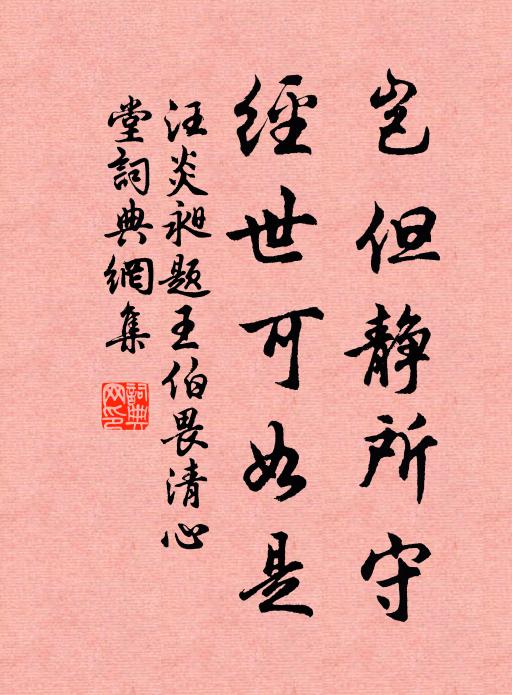 岂但静所守
經世可如是
汪炎昶题王伯畏清心
堂詞典網集
詞典網印